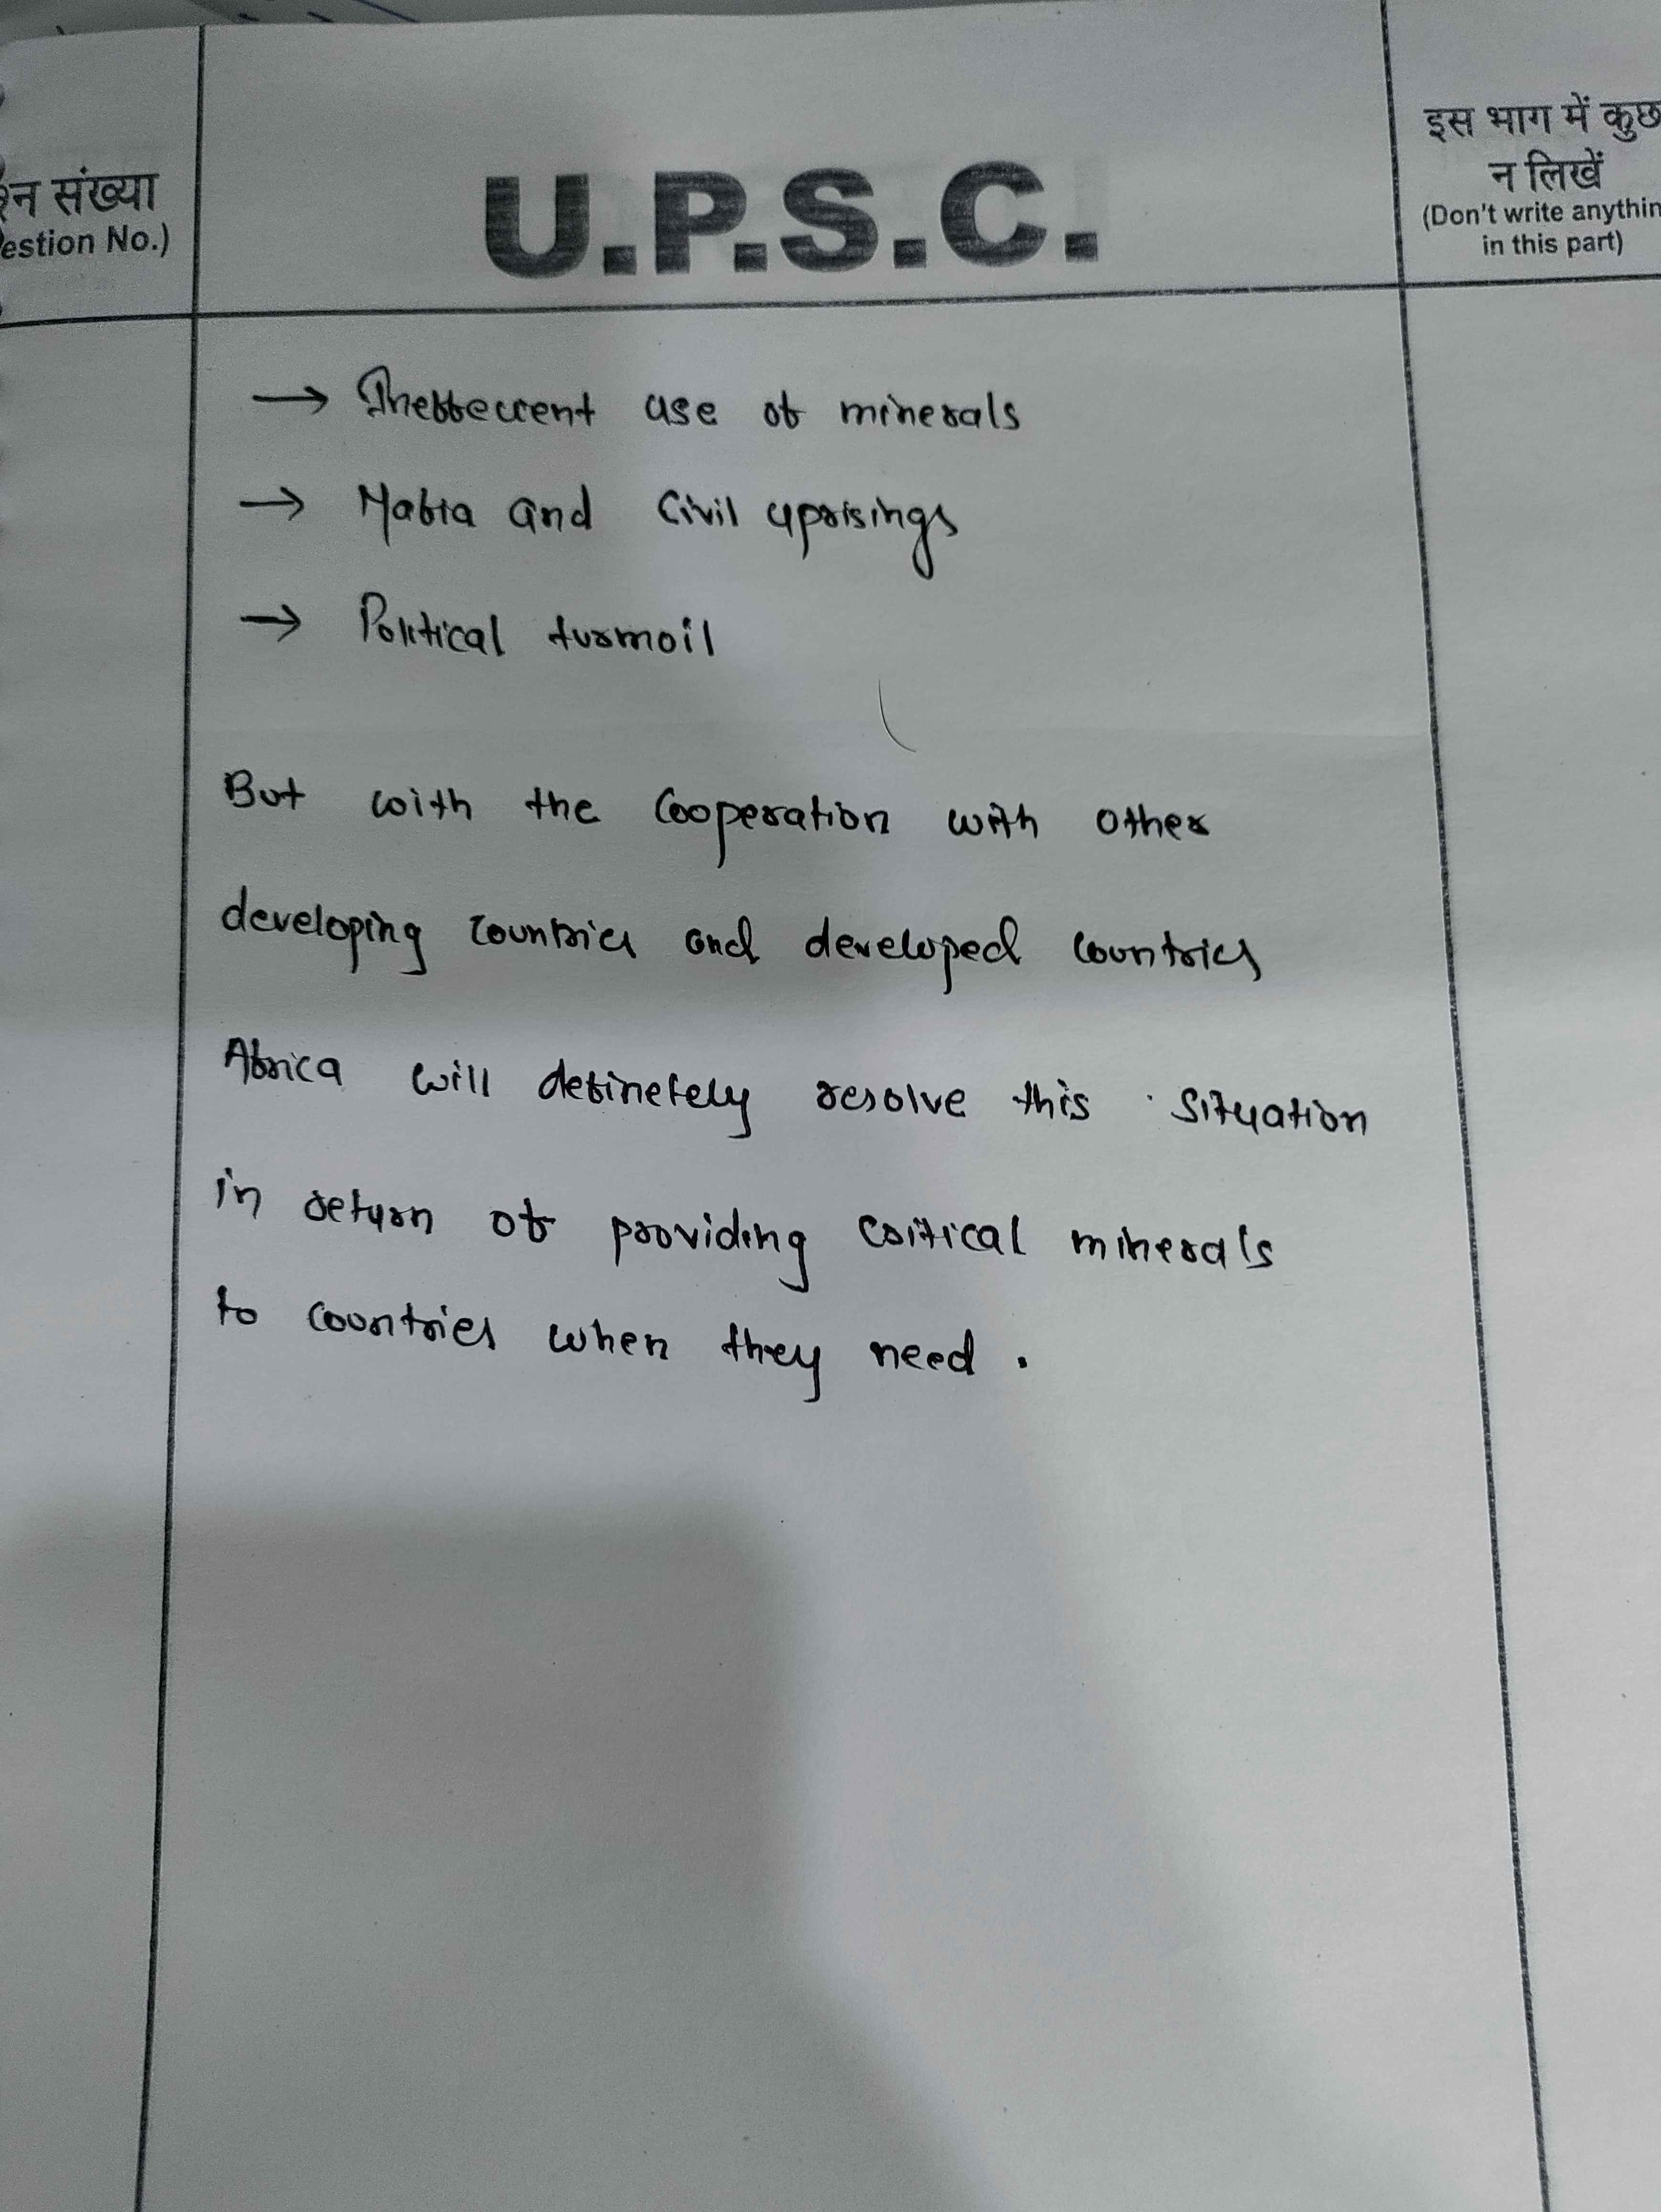 न संख्या
estion No.)
U.P.S.C.
इस भाग में कुछ
न लिखें
(Don't write anythin
in this part)
→ Ineffecient use of minerals
→ Mafia and Civil uprisings
→ Political turmoil
But with the Cooperation with other
developing countries and developed countries
Africa will definetely resolve this situation
in return of providing critical minerals
to countries when they need.